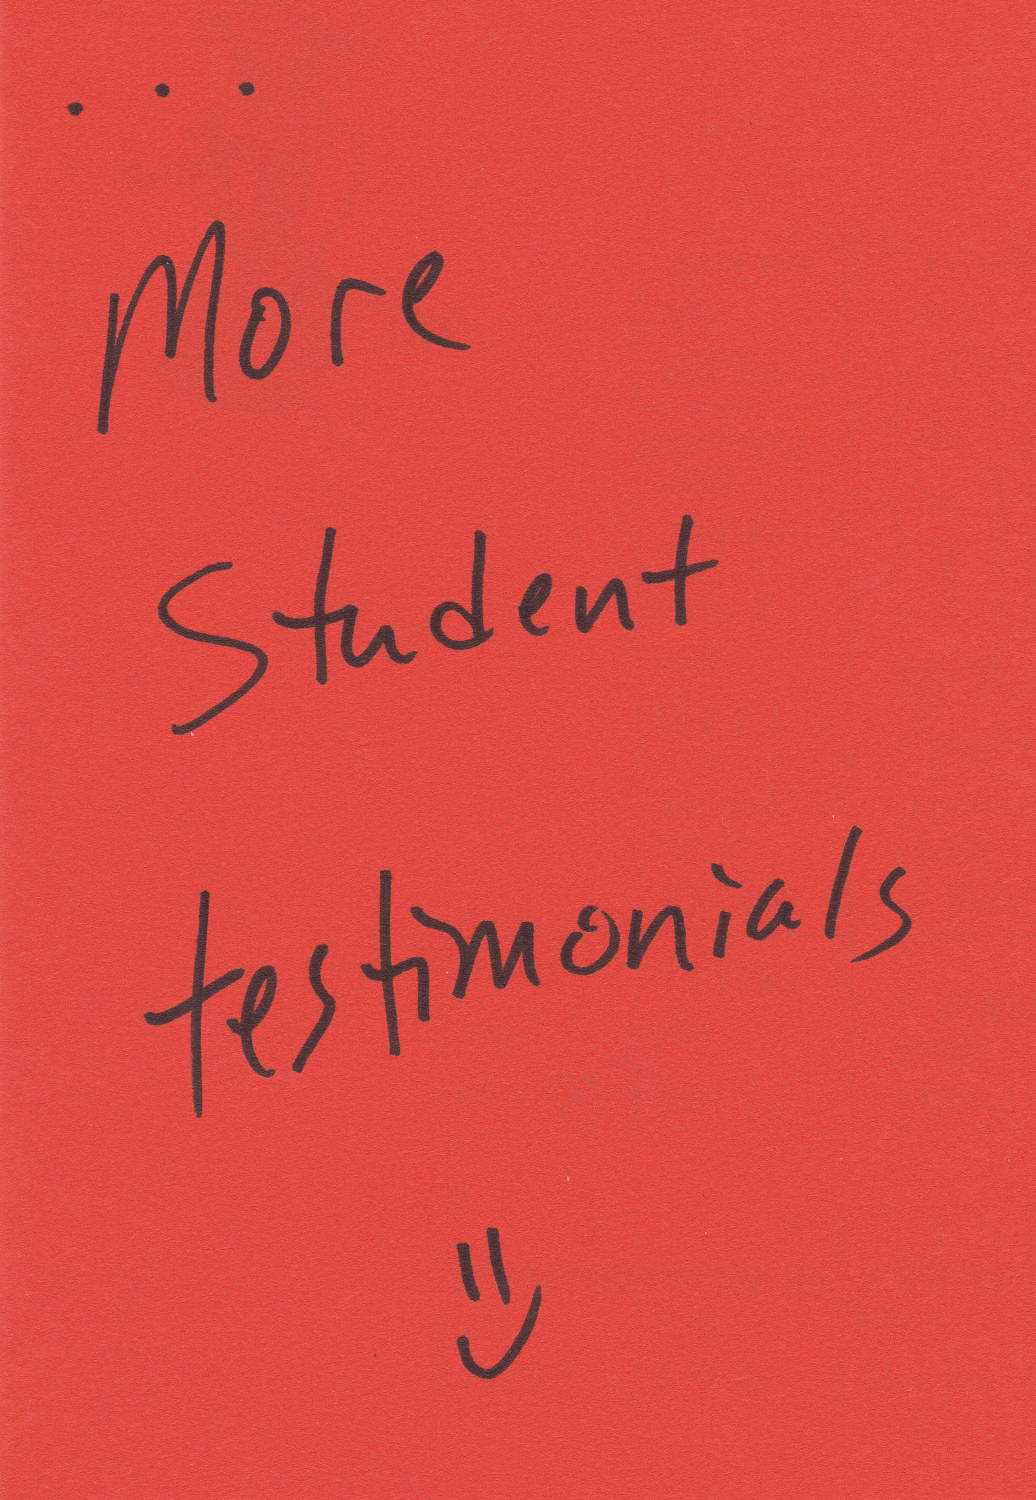 ...
More
Student
testimonials